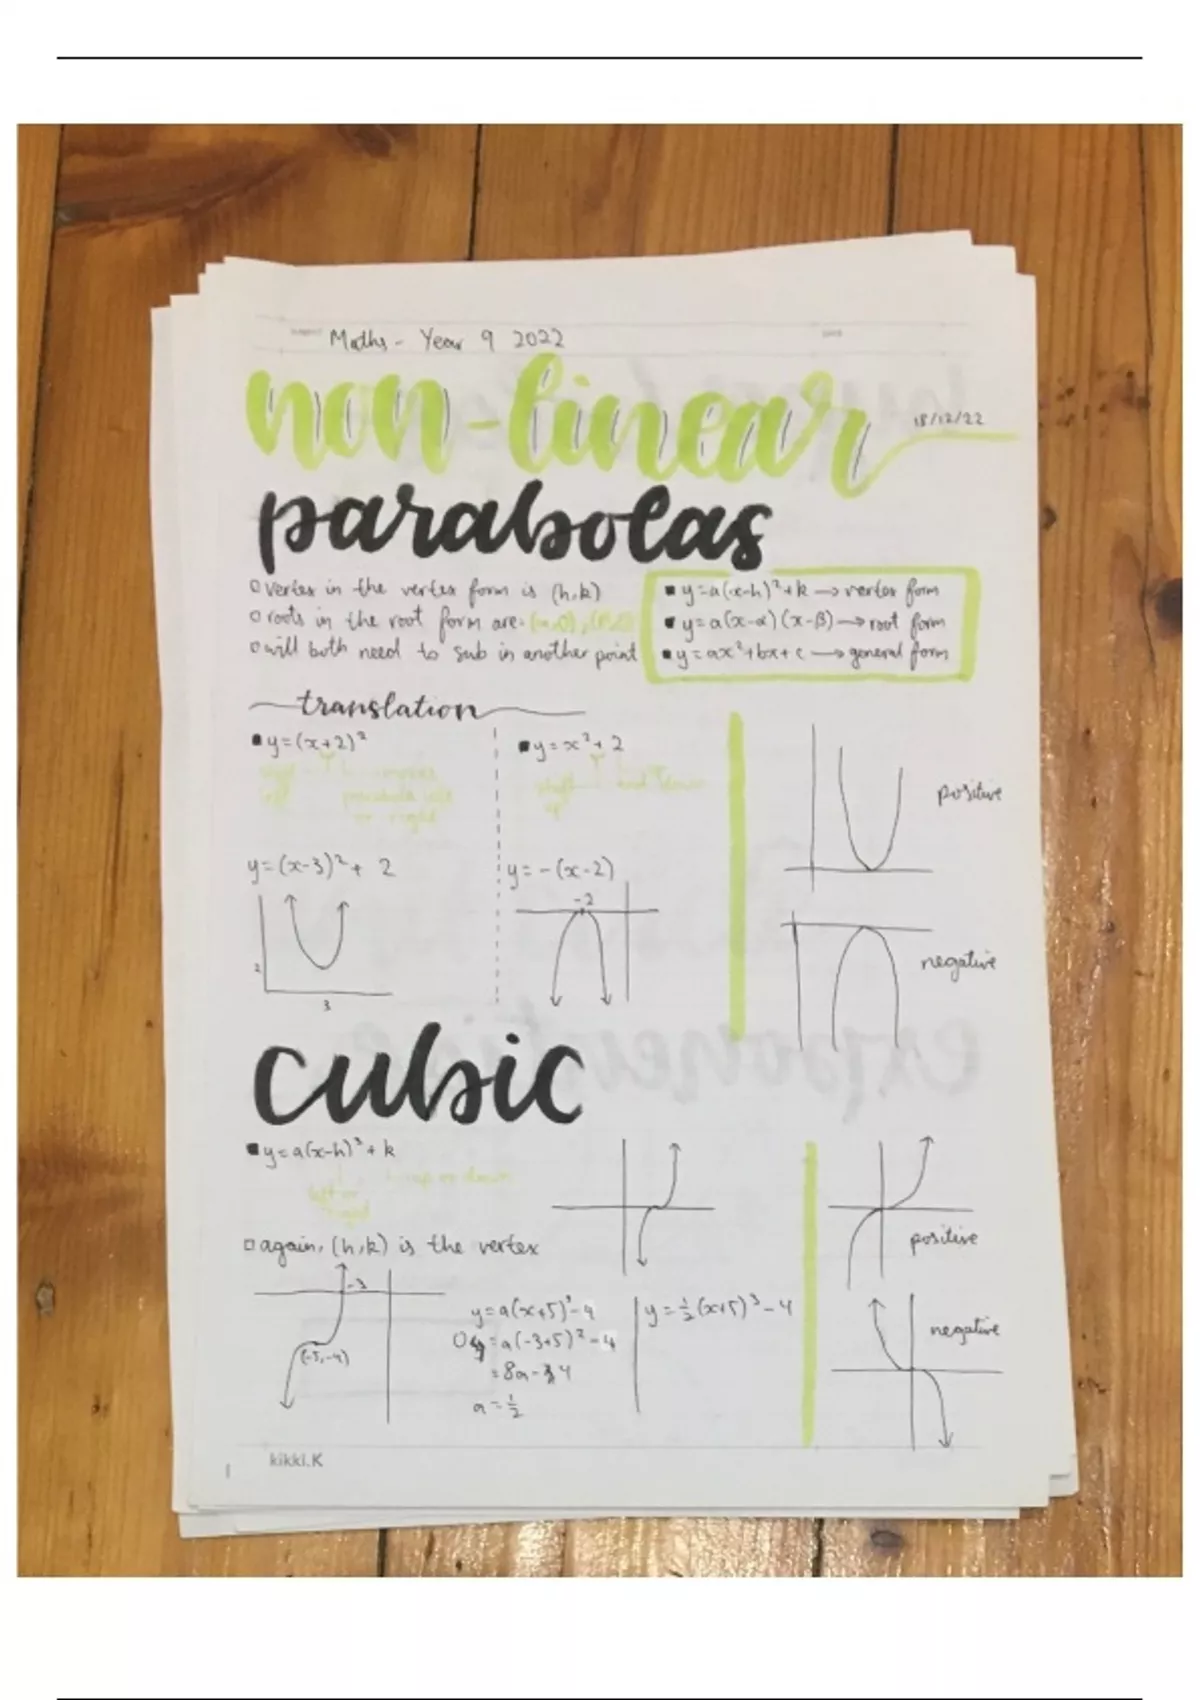 Maths - Year 9 2022
non-linear
18/12/22
parabolas
vertex in the vertex form is (h,k)
roots in the root form are
will both need to sub in another point
y=a(x-h)²+k → vertex form
y=a(x-α)(x-β) → root form
y=ax²+bx+c → general form
translation
y=(x+2)²
parabola left
or right
y=x²+2
and down
up
positive
y=(x-3)²+2
2
3
y=-(x-2)
-2
negative
cubic
y=a(x-h)³+k
up or down
left or
right
again, (h,k) is the vertex
-3
(-5,-4)
y=a(x+5)³-4
0=a(-3+5)²-4
=8a-4
a=½
y=½(x+5)³-4
positive
negative
kikki.K